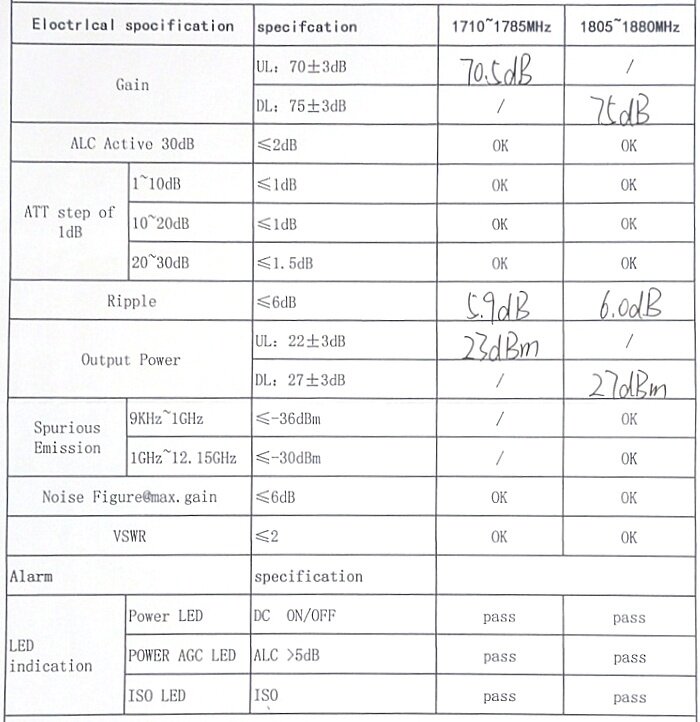 Eloctrlcal spocification specifcation 1710~1785MHz 1805~1880MHz
Gain UL: 70±3dB 70.5dB /
DL: 75±3dB / 75dB
ALC Active 30dB ≤2dB OK OK
ATT step of 1dB 1~10dB ≤1dB OK OK
10~20dB ≤1dB OK OK
20~30dB ≤1.5dB OK OK
Ripple ≤6dB 5.9dB 6.0dB
Output Power UL: 22±3dB 23dBm /
DL: 27±3dB / 27dBm
Spurious Emission 9KHz~1GHz ≤-36dBm / OK
1GHz~12.15GHz ≤-30dBm / OK
Noise Figure@max.gain ≤6dB OK OK
VSWR ≤2 OK OK
Alarm specification
LED indication Power LED DC ON/OFF pass pass
POWER AGC LED ALC >5dB pass pass
ISO LED ISO pass pass